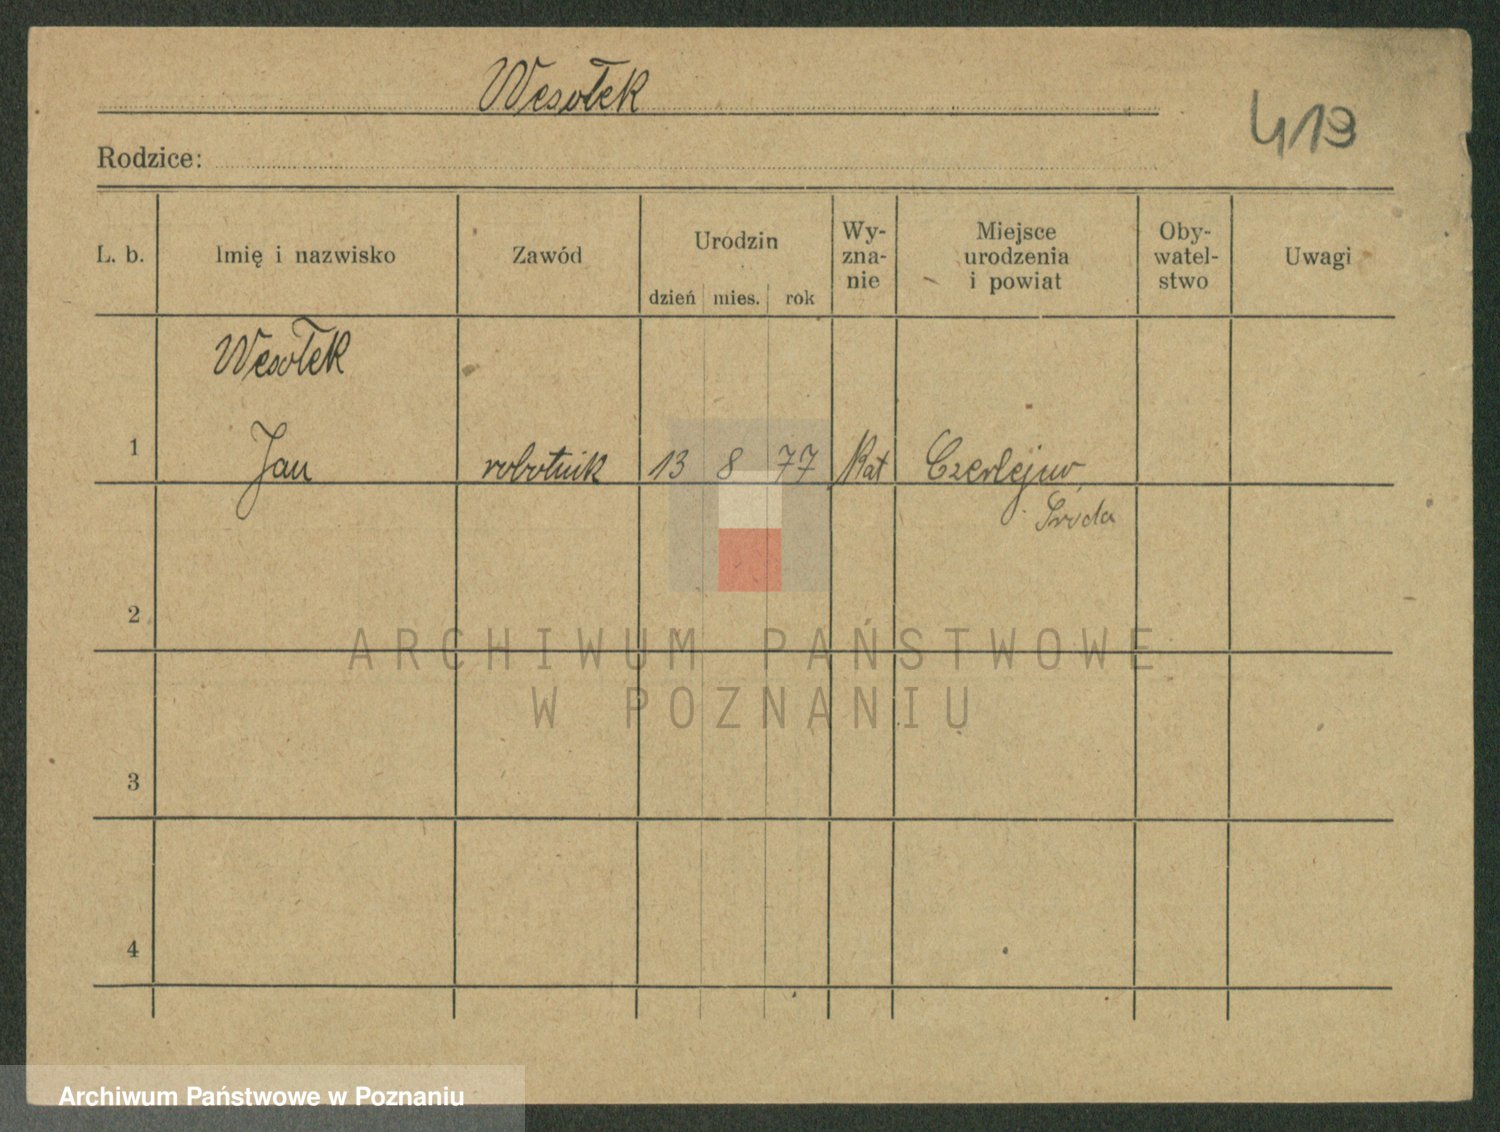 Wesołek
419
Rodzice:
L. b. Imię i nazwisko Zawód Urodzin Wy- Miejsce Oby- Uwagi
zna- urodzenia watel-
dzień mies. rok nie i powiat stwo
Wesołek
1 Jan robotnik 13 8 77 Kat Czerlejno,
Środa
2
ARCHIWUM PAŃSTWOWE
W POZNANIU
3
4
Archiwum Państwowe w Poznaniu